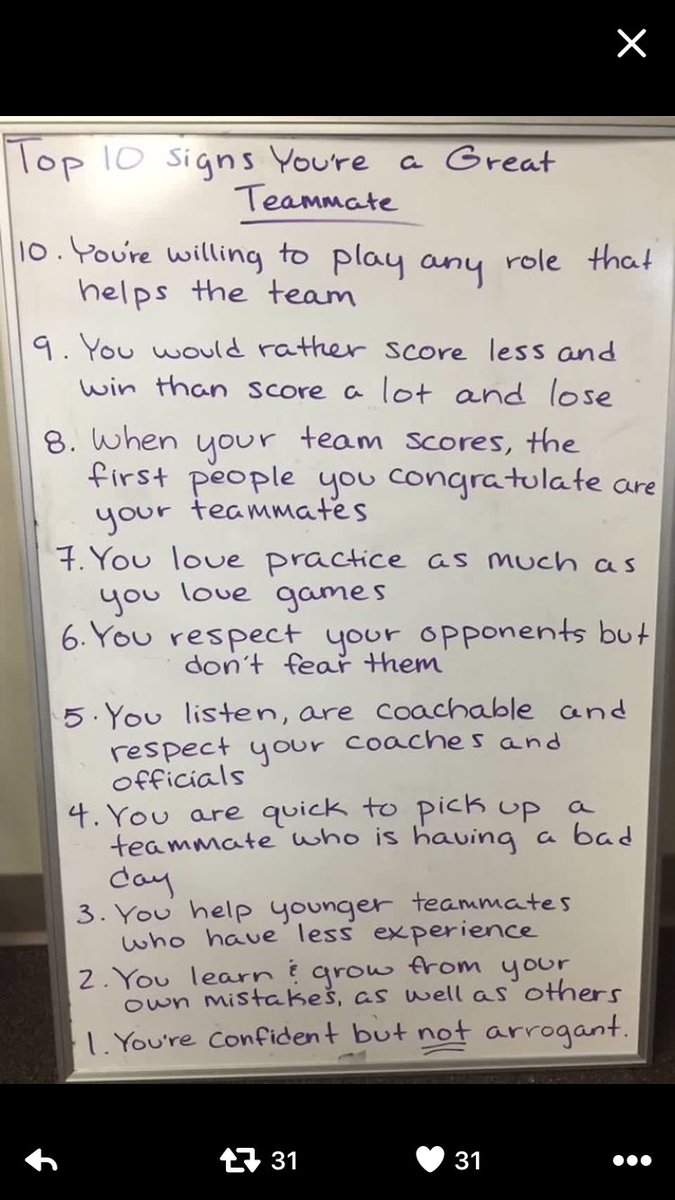 Top 10 Signs You're a Great
Teammate
10. You're willing to play any role that
helps the team
9. You would rather score less and
win than score a lot and lose
8. When your team scores, the
first people you congratulate are
your teammates
7. You love practice as much as
you love games
6. You respect your opponents but
don't fear them
5. You listen, are coachable and
respect your coaches and
officials
4. You are quick to pick up a
teammate who is having a bad
day
3. You help younger teammates
who have less experience
2. You learn & grow from your
own mistakes, as well as others
1. You're confident but not arrogant.
31 31